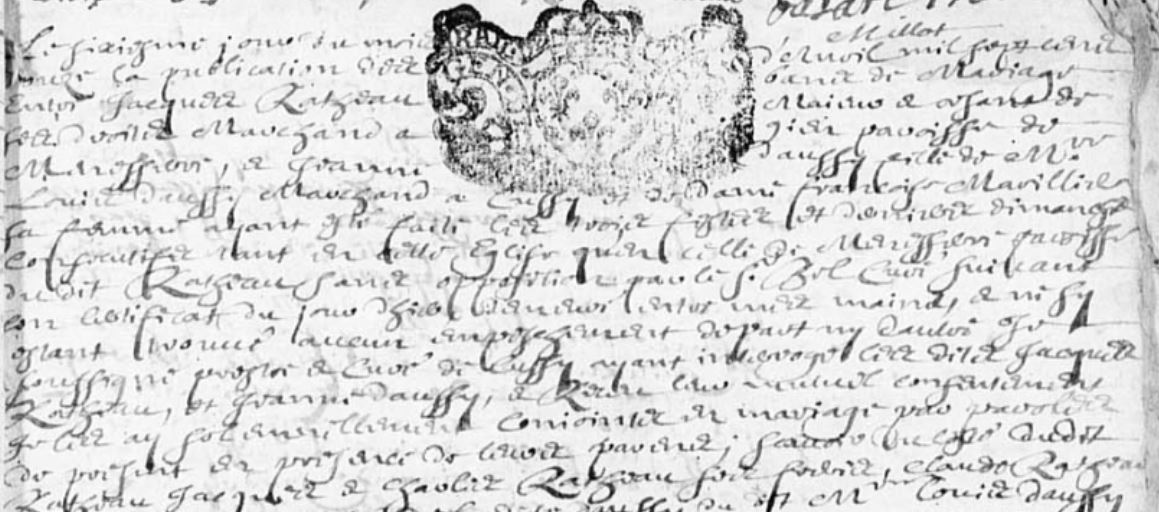 Millot
Le sixiesme jour du mois d'avril mil sept cent
onze la publication des bancs de Mariage
entre Jacques Ratheau Maieur et
Marchand a paroisse de
Meressier, et Jeanne Daussy fille de Mre
Louis Daussy Marchand a Cussy et de Dame françoise
sa femme ayant esté faite les trois festes et derniers dimanche
consecutifs tant en cette Eglise qu'en celle de paroisse
dudit Ratheau sans opposition par le sr Bol Curé suivant
son certificat du jour d'hier demeuré entre mes mains, et ne sy
estant trouvé aucun empeschement de part ny d'autre Je
soussigné prestre et Curé de Cussy ayant interrogé lesdites Jacques
Ratheau, et Jeanne Daussy, et Receu leur mutuel consentement
Je les ay solemnellement conjoints en mariage par parolles
de present en presence de leurs parens; scavoir du costé dudit
Ratheau Jacques et Charles Ratheau ses freres, Claude Ratheau
du dit Mre Louis Daussy